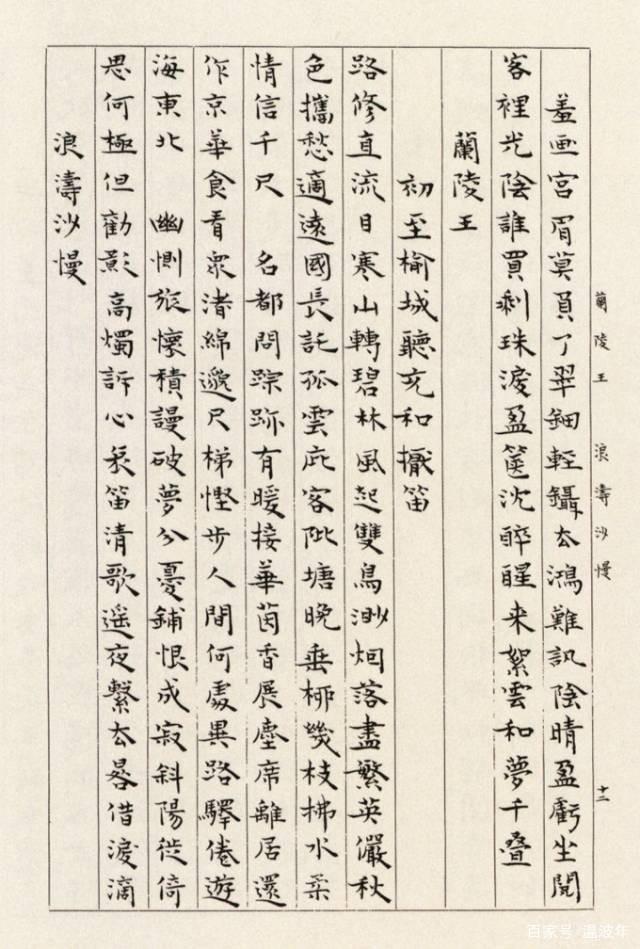 蘭陵王 浪濤沙慢 十二
羞画宫眉莫負了翠鈿輕鑷去鴻難訊陰晴盈虧坐閱
客裡光陰誰買剩珠淚盈箧沈醉醒来絮雲和夢千疊
蘭陵王
初至榆城聽充和擫笛
路修直流目寒山轉碧林風起雙鳥渺烟落盡繁英儼秋
色攜愁適遠國長託孤雲庇客阰塘晚垂桺幾枝拂水柔
情信千尺 名都問踪跡有暖接華茵香展塵席離居還
作京華食看衆渚綿邈尺梯慳步人間何處異路驛倦遊
海東北 幽惻旅懷積謾破夢分憂鋪恨成寂斜陽徙倚
思何極但勸影高燭訴心哀笛清歌遥夜繫去晷借淚滴
浪濤沙慢
百家号/温波年